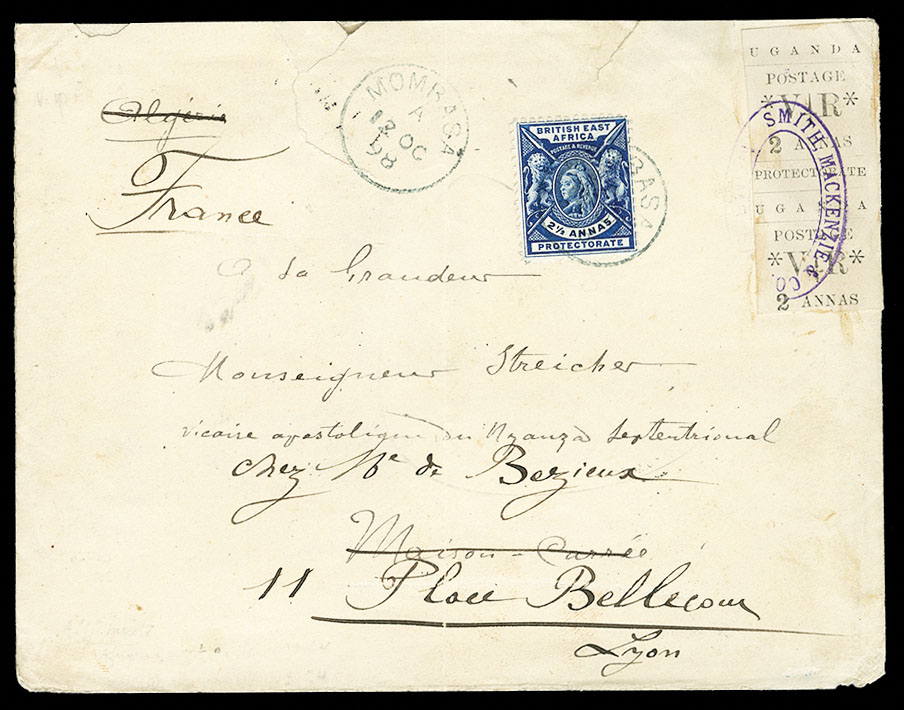 UGANDA
POSTAGE
*V R*
2 ANNAS
PROTECTORATE
UGANDA
POSTAGE
*V R*
2 ANNAS
SMITH, MACKENZIE & CO
MOMBASA
A
12 OC
98
BRITISH EAST
AFRICA
POSTAGE & REVENUE
2½ ANNAS
PROTECTORATE
BASA
Algérie
France
A Sa Grandeur
Monseigneur Streicher
vicaire apostolique du Nyanza septentrional
chez Me de Bezieux
Maison-Carrée
11 Place Bellecour
Lyon